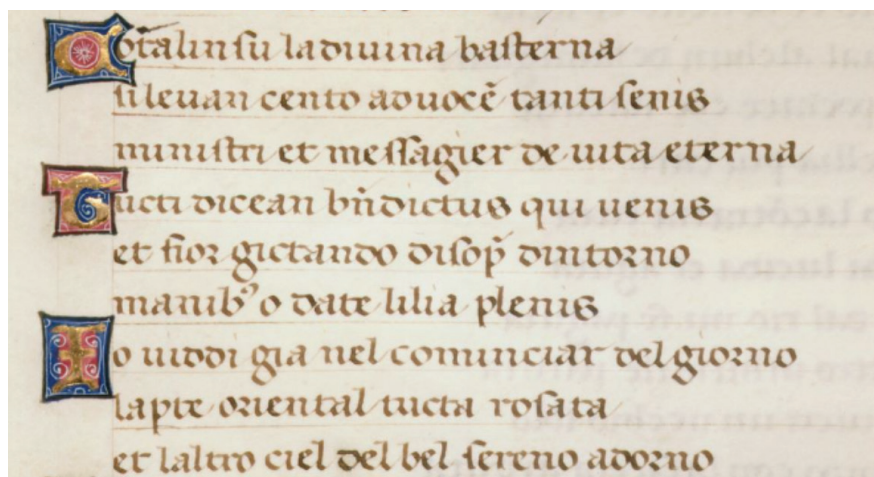 Cotalin su la divina basterna
si levan cento ad vocē tanti senis
ministri et messagier de vita eterna
Tucti dicean bn̄dictus qui venis
et fior gictando disop̄ dintorno
manibꝰ o date lilia plenis
Io viddi gia nel cominciar del giorno
la pte oriental tucta rosata
et laltro ciel del bel sereno adorno